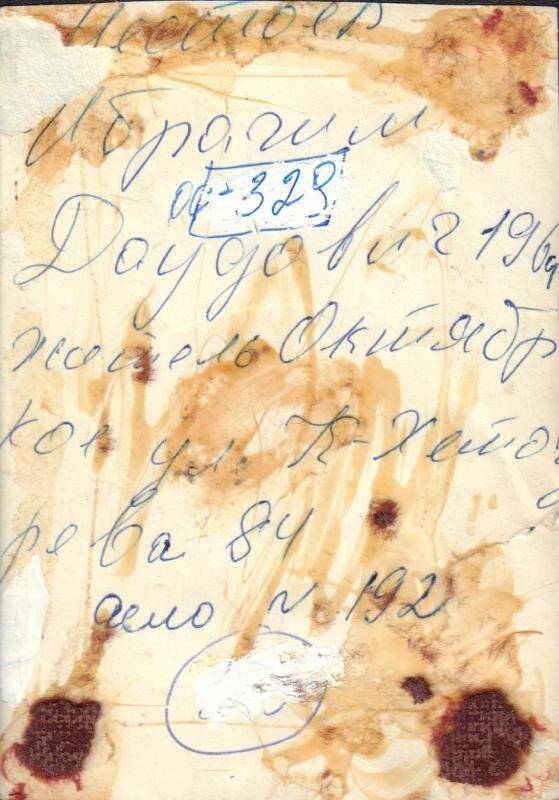 Ибрагим
оф-329
Даудович 196
житель Октябр
кое ул. К-Хета
рева 84
дело N 192